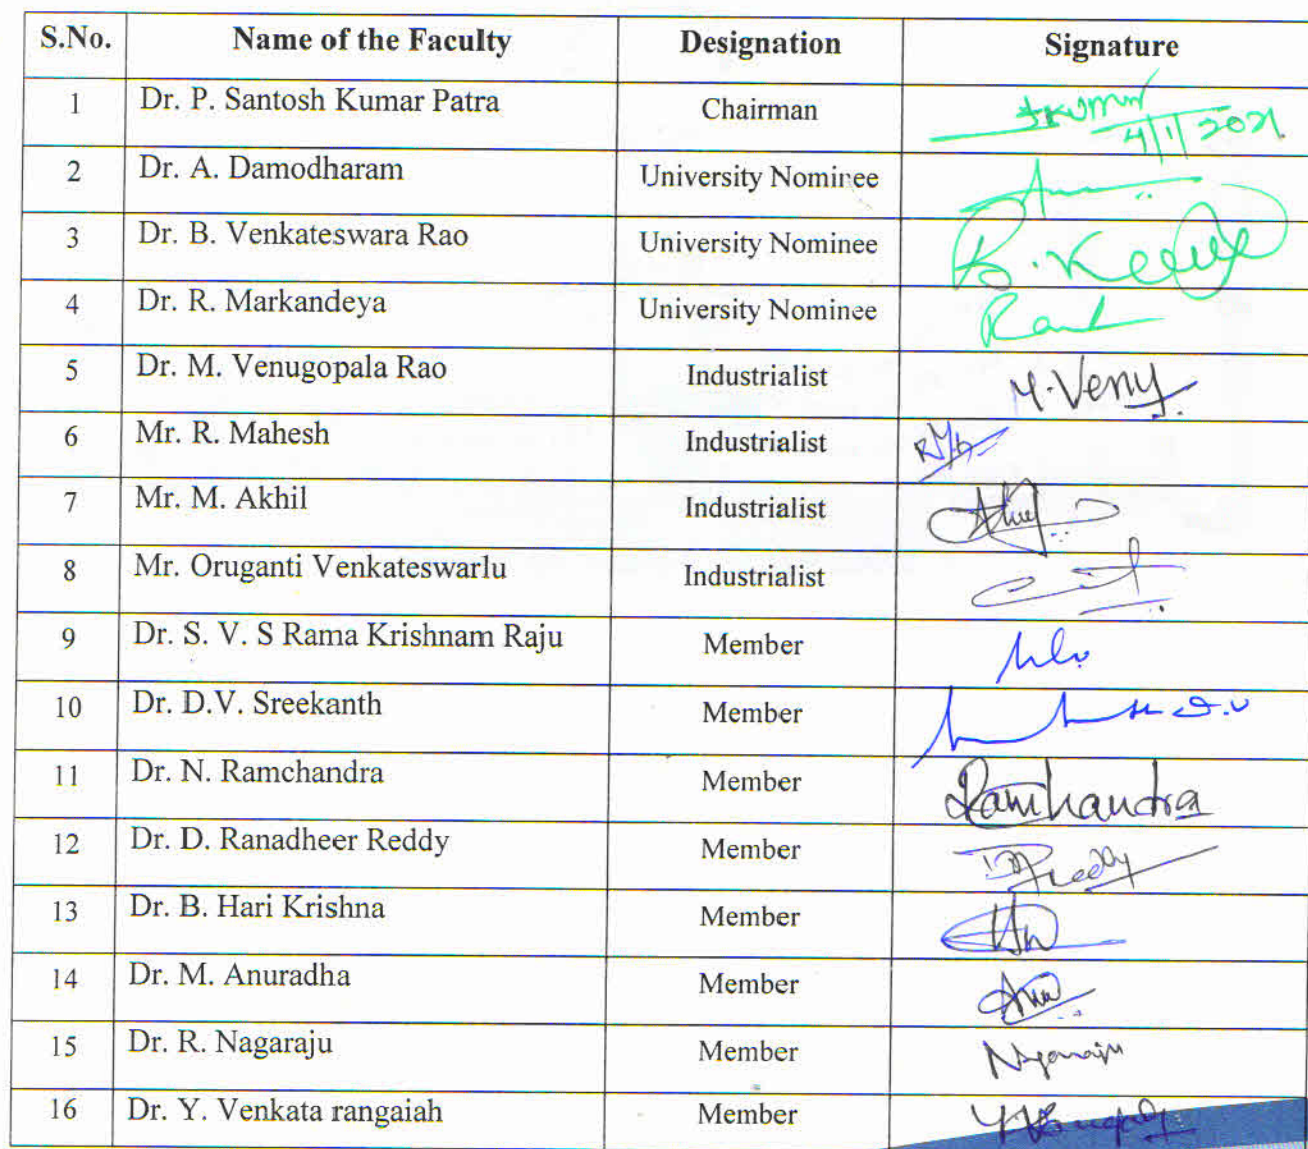 S.No. Name of the Faculty Designation Signature
1 Dr. P. Santosh Kumar Patra Chairman
4/1/2021
2 Dr. A. Damodharam University Nominee
3 Dr. B. Venkateswara Rao University Nominee
4 Dr. R. Markandeya University Nominee
5 Dr. M. Venugopala Rao Industrialist M.Venu
6 Mr. R. Mahesh Industrialist
7 Mr. M. Akhil Industrialist
8 Mr. Oruganti Venkateswarlu Industrialist
9 Dr. S. V. S Rama Krishnam Raju Member
10 Dr. D.V. Sreekanth Member
11 Dr. N. Ramchandra Member Ramchandra
12 Dr. D. Ranadheer Reddy Member
13 Dr. B. Hari Krishna Member
14 Dr. M. Anuradha Member
15 Dr. R. Nagaraju Member Nagaraju
16 Dr. Y. Venkata rangaiah Member